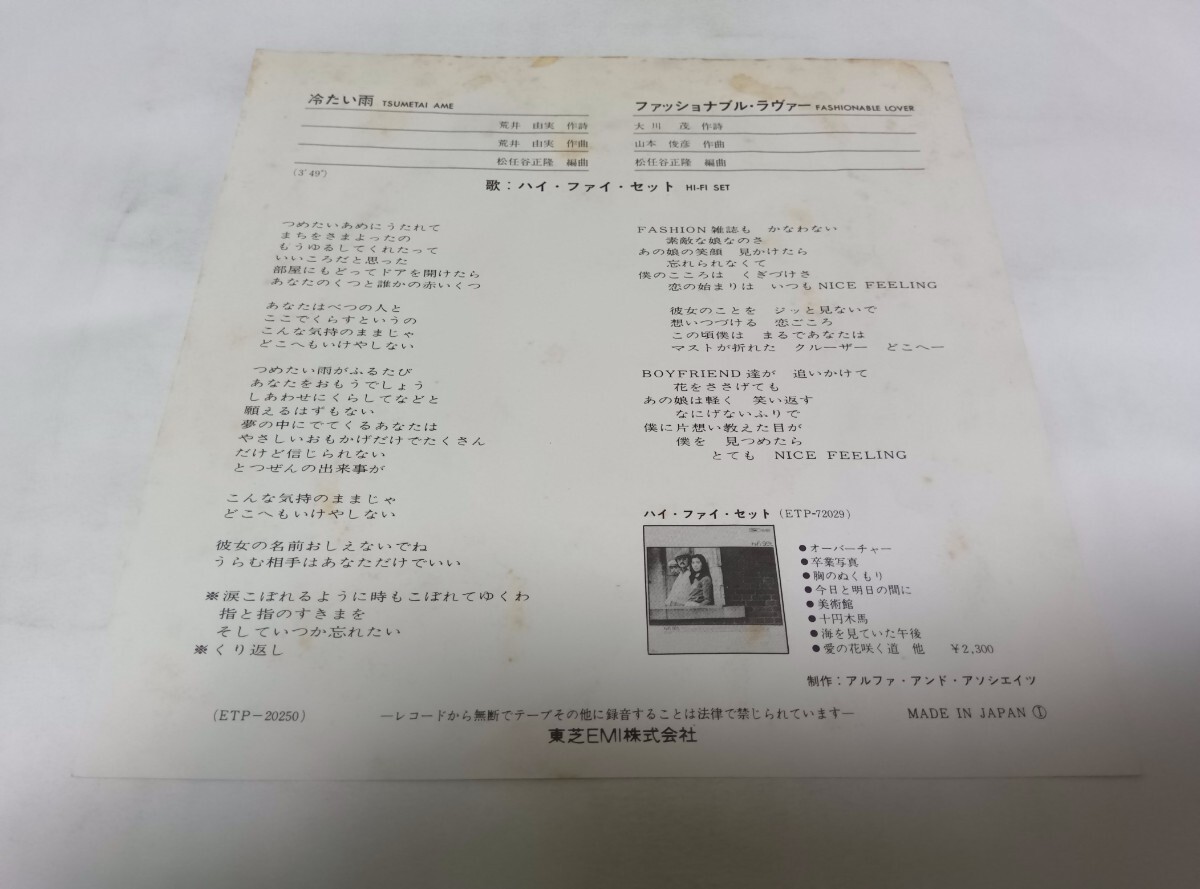 冷たい雨 TSUMETAI AME
荒井 由実 作詩
荒井 由実 作曲
松任谷正隆 編曲
(3'49")
ファッショナブル・ラヴァー FASHIONABLE LOVER
大川 茂 作詩
山本 俊彦 作曲
松任谷正隆 編曲
歌:ハイ・ファイ・セット HI-FI SET
つめたいあめにうたれて
まちをさまよったの
もうゆるしてくれたって
いいころだと思った
部屋にもどってドアを開けたら
あなたのくつと誰かの赤いくつ
あなたはべつの人と
ここでくらすというの
こんな気持のままじゃ
どこへもいけやしない
つめたい雨がふるたび
あなたをおもうでしょう
しあわせにくらしてなどと
願えるはずもない
夢の中にでてくるあなたは
やさしいおもかげだけでたくさん
だけど信じられない
とつぜんの出来事が
こんな気持のままじゃ
どこへもいけやしない
彼女の名前おしえないでね
うらむ相手はあなただけでいい
※涙こぼれるように時もこぼれてゆくわ
指と指のすきまを
そしていつか忘れたい
※くり返し
FASHION 雑誌も かなわない
素敵な娘なのさ
あの娘の笑顔 見かけたら
忘れられなくて
僕のこころは くぎづけさ
恋の始まりは いつも NICE FEELING
彼女のことを ジッと見ないで
想いつづける 恋ごころ
この頃僕は まるであなたは
マストが折れた クルーザー どこへー
BOYFRIEND 達が 追いかけて
花をささげても
あの娘は軽く 笑い返す
なにげないふりで
僕に片想い教えた目が
僕を 見つめたら
とても NICE FEELING
ハイ・ファイ・セット (ETP-72029)
●オーバーチャー
●卒業写真
●胸のぬくもり
●今日と明日の間に
●美術館
●十円木馬
●海を見ていた午後
●愛の花咲く道 他 ¥2,300
制作:アルファ・アンド・アソシエイツ
(ETP-20250) ―レコードから無断でテープその他に録音することは法律で禁じられています― MADE IN JAPAN ①
東芝EMI株式会社